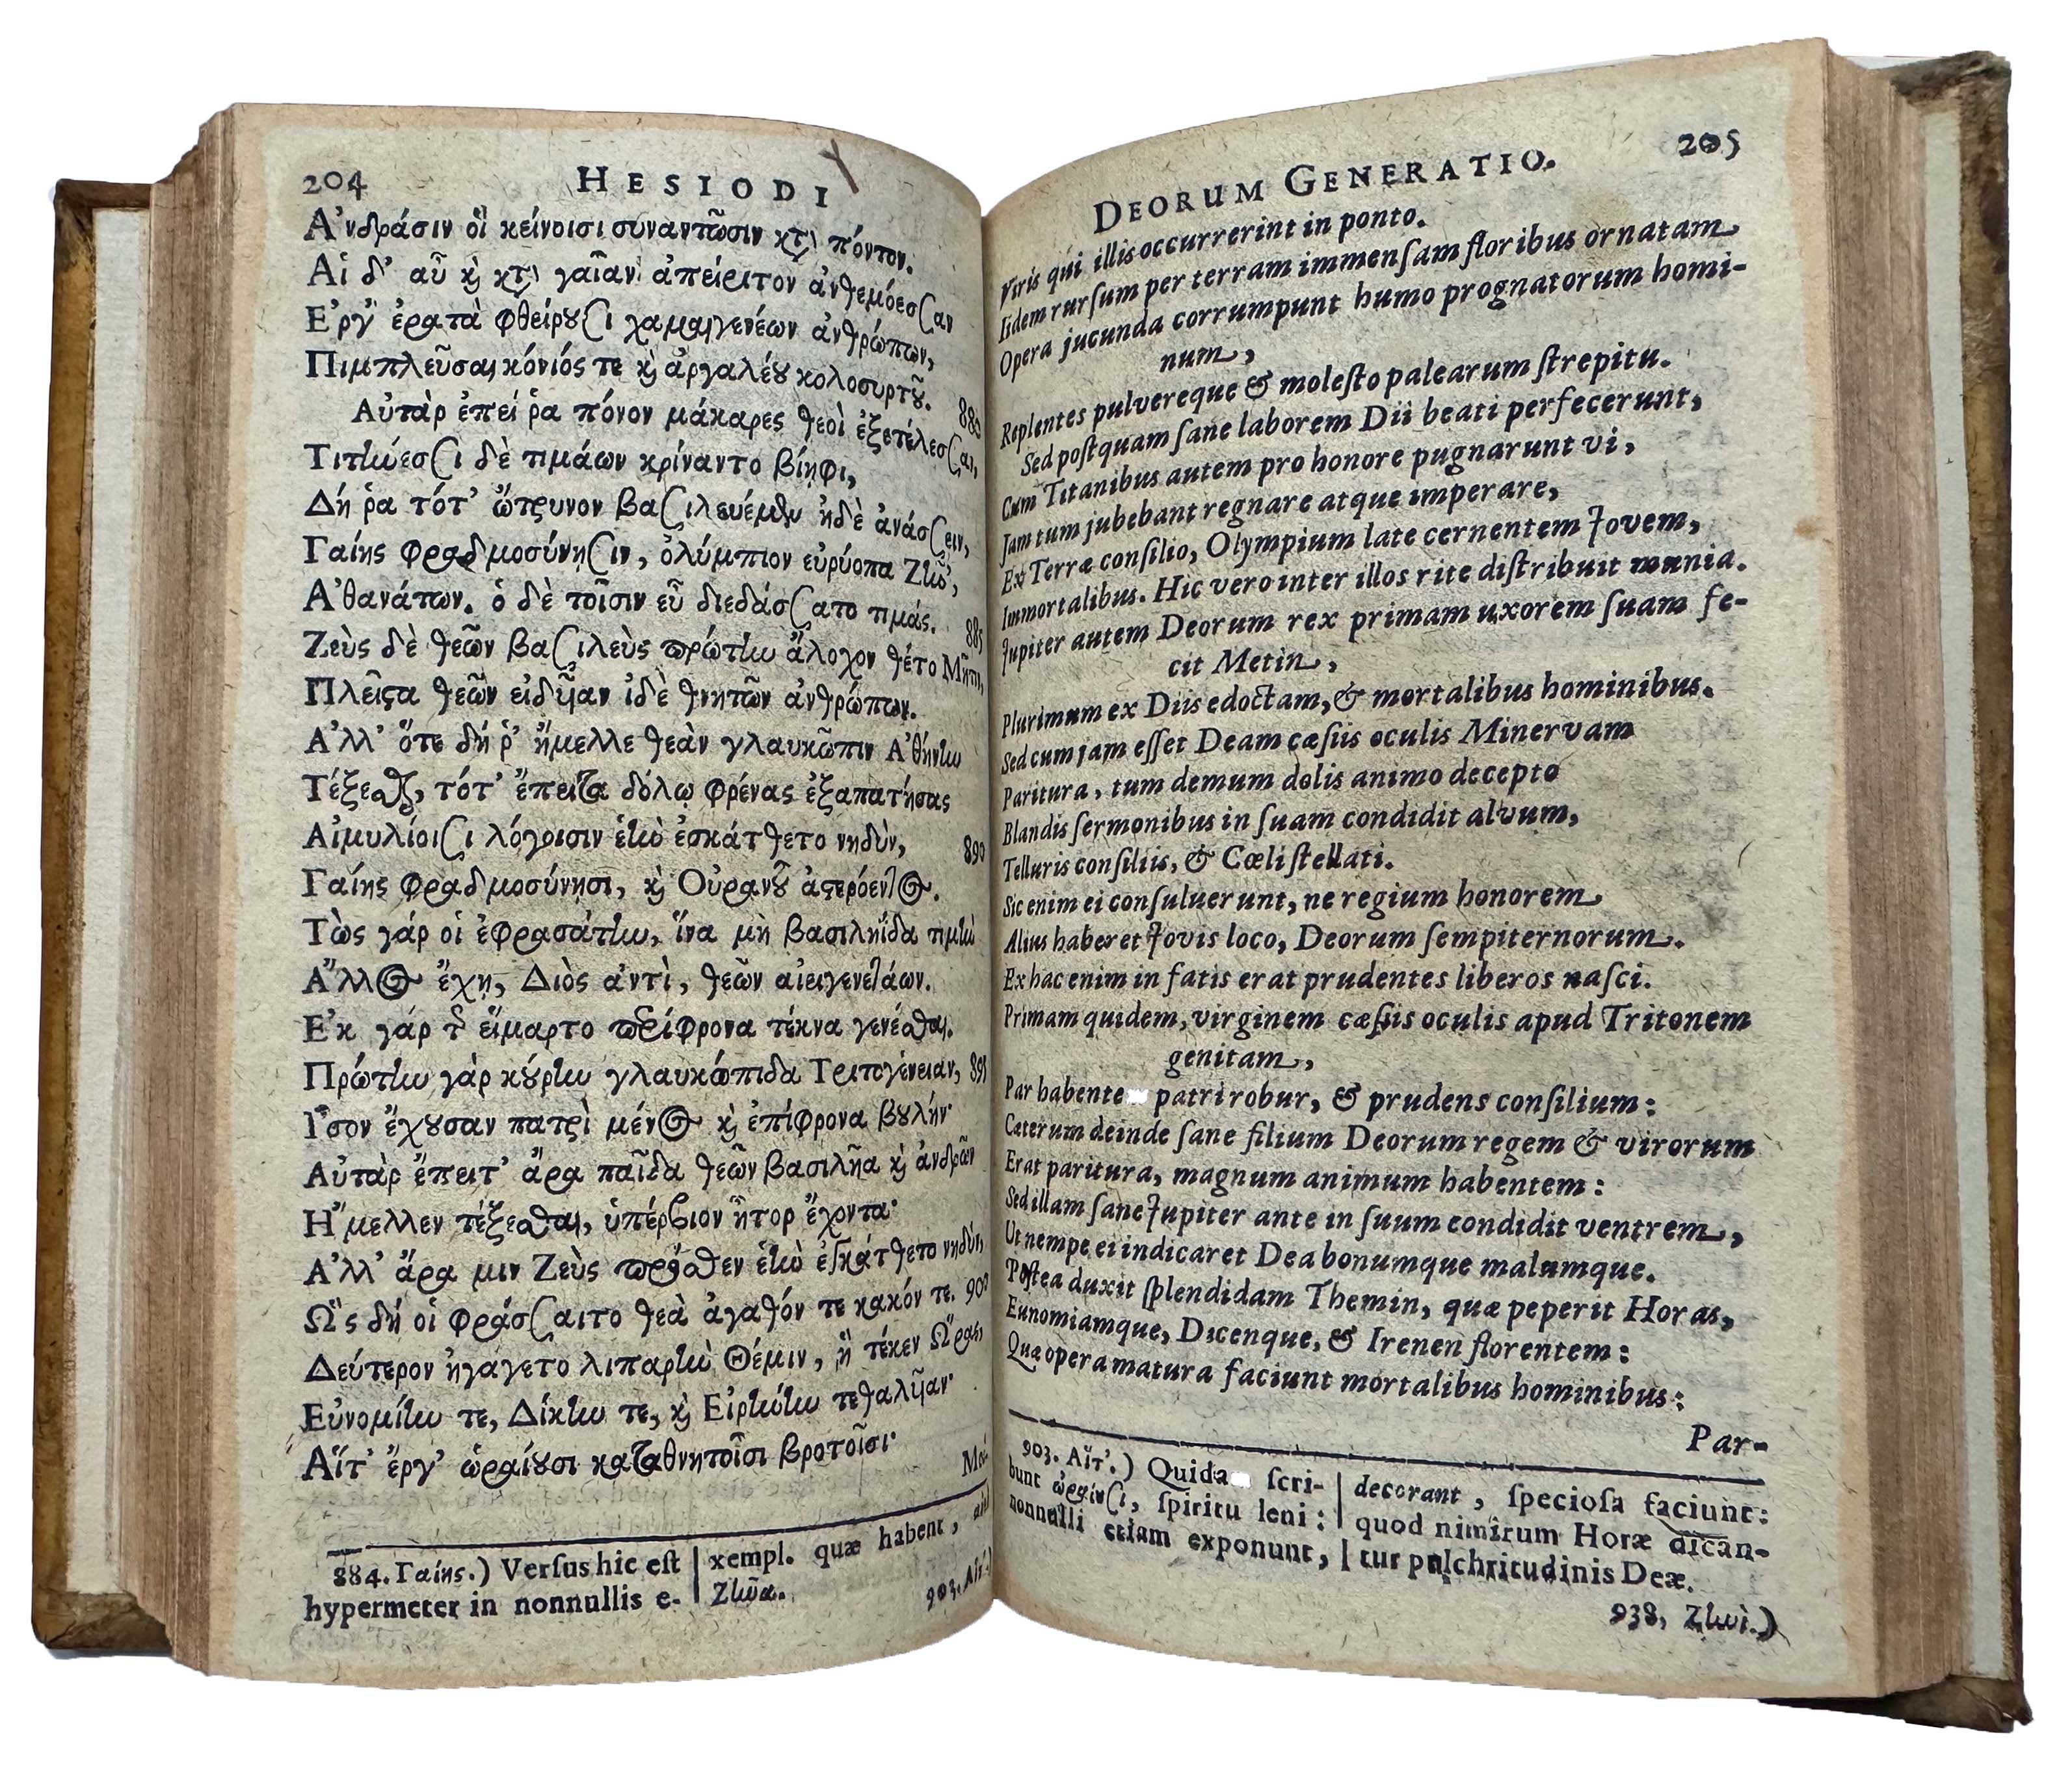 204 HESIODI
Ἀνδράσιν οἳ κείνοισι συναντῶσιν κτ̀ πόντον.
Αἱ δ' αὖ κ̀ κτ̀ γαῖαν ἀπείριτον ἀνθεμόεσσαν
Ἔργ' ἐρατὰ φθείρȣσι χαμαιγενέων ἀνθρώπων,
Πιμπλεῦσαι κόνιός τε κ̀ ἀργαλέȣ κολοσυρτȣ͂. 880
Αὐτὰρ ἐπεί ῥα πόνον μάκαρες θεοὶ ἐξετέλεσσαι,
Τιτήνεσσι δὲ τιμάων κρίναντο βίηφι,
Δή ῥα τότ' ὤτρυνον βασιλευέμεν ἠδὲ ἀνάσσειν,
Γαίης φραδμοσύνησιν, ὀλύμπιον εὐρύοπα Ζῆν',
Ἀθανάτων. ὁ δὲ τοῖσιν εὖ διεδάσσατο τιμάς. 885
Ζεὺς δὲ θεῶν βασιλεὺς πρώτην ἄλοχον θέτο Μῆτιν,
Πλεῖϛα θεῶν εἰδυῖαν ἰδὲ θνητῶν ἀνθρώπων.
Ἀλλ' ὅτε δή ῥ' ἤμελλε θεὰν γλαυκῶπιν Ἀθήνην
Τέξεσθαι, τότ' ἔπειτα δόλῳ φρένας ἐξαπατήσας
Αἱμυλίοισι λόγοισιν ἑὴν ἐσκάτθετο νηδὺν, 890
Γαίης φραδμοσύνησι, κ̀ Οὐρανȣ͂ ἀϛερόεντος.
Τὼς γάρ οἱ ἐφρασάτην, ἵνα μὴ βασιληΐδα τιμὴν
Ἄλλος ἔχῃ, Διὸς ἀντὶ, θεῶν αἰειγενετάων.
Ἐκ γάρ τ̃ εἵμαρτο περίφρονα τέκνα γενέσθαι.
Πρώτην γὰρ κȣ́ρην γλαυκώπιδα Τριτογένειαν, 895
Ἶσον ἔχȣσαν πατρὶ μένος κ̀ ἐπίφρονα βȣλήν·
Αὐτὰρ ἔπειτ' ἄρα παῖδα θεῶν βασιλῆα κ̀ ἀνδρῶν
Ἤμελλεν τέξεσθαι, ὑπέρβιον ἦτορ ἔχοντα·
Ἀλλ' ἄρα μιν Ζεὺς πρόσθεν ἑὴν ἐσκάτθετο νηδὺν,
Ὣς δή οἱ φράσσαιτο θεὰ ἀγαθόν τε κακόν τε. 900
Δεύτερον ἠγάγετο λιπαρὴν Θέμιν, ἣ τέκεν Ὥρας,
Εὐνομίην τε, Δίκην τε, κ̀ Εἰρήνην τεθαλυῖαν·
Αἵτ' ἔργ' ὡραίȣσι καταθνητοῖσι βροτοῖσι·
884. Γαίης.) Versus hic est
hypermeter in nonnullis e-
xempl. quæ habent,
Ζῆνα.
903. Αἵτ'.)
DEORUM GENERATIO. 205
Viris qui illis occurrerint in ponto.
Iidem rursum per terram immensam floribus ornatam
Opera jucunda corrumpunt humo prognatorum homi-
num,
Replentes pulvereque & molesto palearum strepitu.
Sed postquam sane laborem Dii beati perfecerunt,
Cum Titanibus autem pro honore pugnarunt vi,
Jam tum jubebant regnare atque imperare,
Ex Terræ consilio, Olympium late cernentem Jovem,
Immortalibus. Hic vero inter illos rite distribuit munia.
Jupiter autem Deorum rex primam uxorem suam fe-
cit Metin,
Plurimum ex Diis edoctam, & mortalibus hominibus.
Sed cum jam esset Deam cæsiis oculis Minervam
Paritura, tum demum dolis animo decepto
Blandis sermonibus in suam condidit alvum,
Telluris consiliis, & Cœli stellati.
Sic enim ei consuluerunt, ne regium honorem
Alius haberet Jovis loco, Deorum sempiternorum.
Ex hac enim in fatis erat prudentes liberos nasci.
Primam quidem, virginem cæsiis oculis apud Tritonem
genitam,
Par habente patri robur, & prudens consilium:
Cæterum deinde sane filium Deorum regem & virorum
Erat paritura, magnum animum habentem:
Sed illam sane Jupiter ante in suum condidit ventrem,
Ut nempe ei indicaret Dea bonumque malumque.
Postea duxit splendidam Themin, quæ peperit Horas,
Eunomiamque, Dicenque, & Irenen florentem:
Quæ opera matura faciunt mortalibus hominibus:
Par-
903. Αἵτ'.) Quida scri-
bunt ὠραίνσι, spiritu leni:
nonnulli etiam exponunt,
decorant, speciosa faciunt:
quod nimirum Horæ dican-
tur pulchritudinis Deæ.
938, Ζηνὶ.)